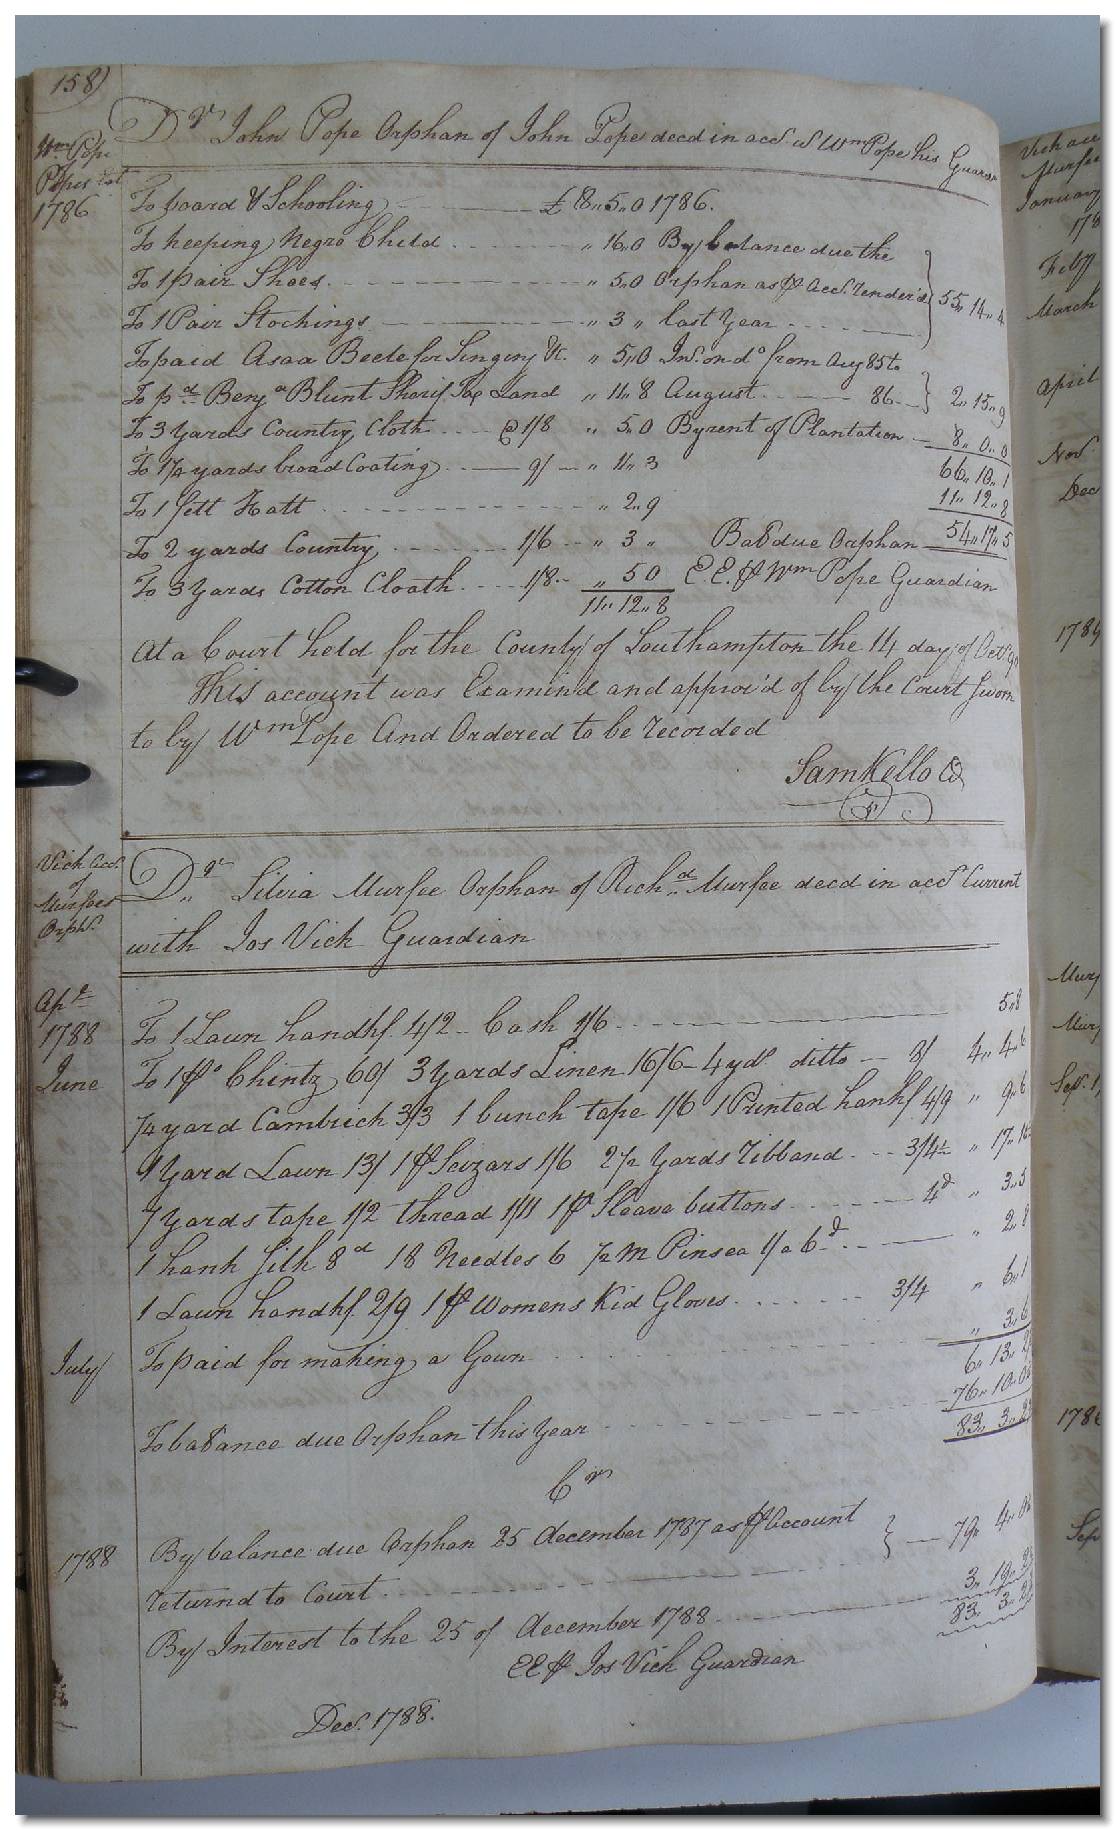 158)
Wm Pope
Popes Est
1786
Dr John Pope Orphan of John Pope decd in acct wt Wm Pope his Guardn
To board & Schooling £ 8,,5,,0 1786.
To keeping Negro Child ,, 16,,0 By balance due the
To 1 pair Shoes. ,, 5,,0 Orphan as ⅌ acct. renderd } 55,,14,,4
To 1 Pair Stockings ,, 3 ,, last Year
To paid Asaa Beele for Singing &c. ,, 5,,0 Int. on do from Aug 85 to
To pd Benja Blunt Sherif Tax Land ,, 11,,8 August 86 } 2,,15,,9
To 3 Yards Country Cloth @ 1/8 ,, 5,,0 By rent of Plantation 8,,0,,0
To 1¼ yards broad Coating 9/ ,, 11,,3 66,,10,,1
To 1 felt Hatt ,, 2,,9 11,,12,,8
To 2 yards Country 1/6 ,, 3 ,, Bal due Orphan 54,,17,,5
To 3 Yards Cotton Cloath 1/8 ,, 5 0 E.E. ⅌ Wm Pope Guardian
11,,12,,8
At a Court held for the County of Southampton the 14 day of Octr
This account was Examind and approv'd of by the Court Sworn
to by Wm Pope And Ordered to be recorded
Sam Kello
Vick acct.
of
Murfees
Orphs.
Dr Silvia Murfee Orphan of Richd Murfee decd in acct Current
with Jos Vick Guardian
Apl
1788
To 1 Lawn handkf 4/2 Cash 1/6 5,,8
June
To 1 ⅌s Chintz 60/ 3 Yards Linen 16/6 4 yds ditto 8/ 4,,4,,6
¼ yard Cambrick 3/3 1 bunch tape 1/6 1 Printed hankf 4/9 ,, 9,,6
1 Yard Lawn 13/ 1 ⅌ Seizars 1/6 2½ Yards Ribband 3/4½ ,, 17,,10½
7 Yards tape 1/2 thread 1/11 1 ⅌ Sleave buttons 4d ,, 3,,5
1 hank Silk 8d 18 Needles 6 ½ M Pins 1/ a 6d ,, 2,,8
1 Lawn handkf 2/9 1 ⅌ Womens Kid Gloves 3/4 ,, 6,,1
July
To paid for making a Gown ,, 3,,6
6,,13,,2
76,,10,,0
To balance due Orphan this Year 83,,3,,2
Cr
1788
By balance due Orphan 25 december 1787 as ⅌ Account
returnd to Court } 79,,4,,0
3,,19,,2
By Interest to the 25 of december 1788 83,,3,,2
EE ⅌ Jos Vick Guardian
Decr. 1788.
Vick acct
Murfee
January
178
Feby
March
April
Novr.
Dec
1789
Murf
Mur
Sepr. 1
1786
Sep